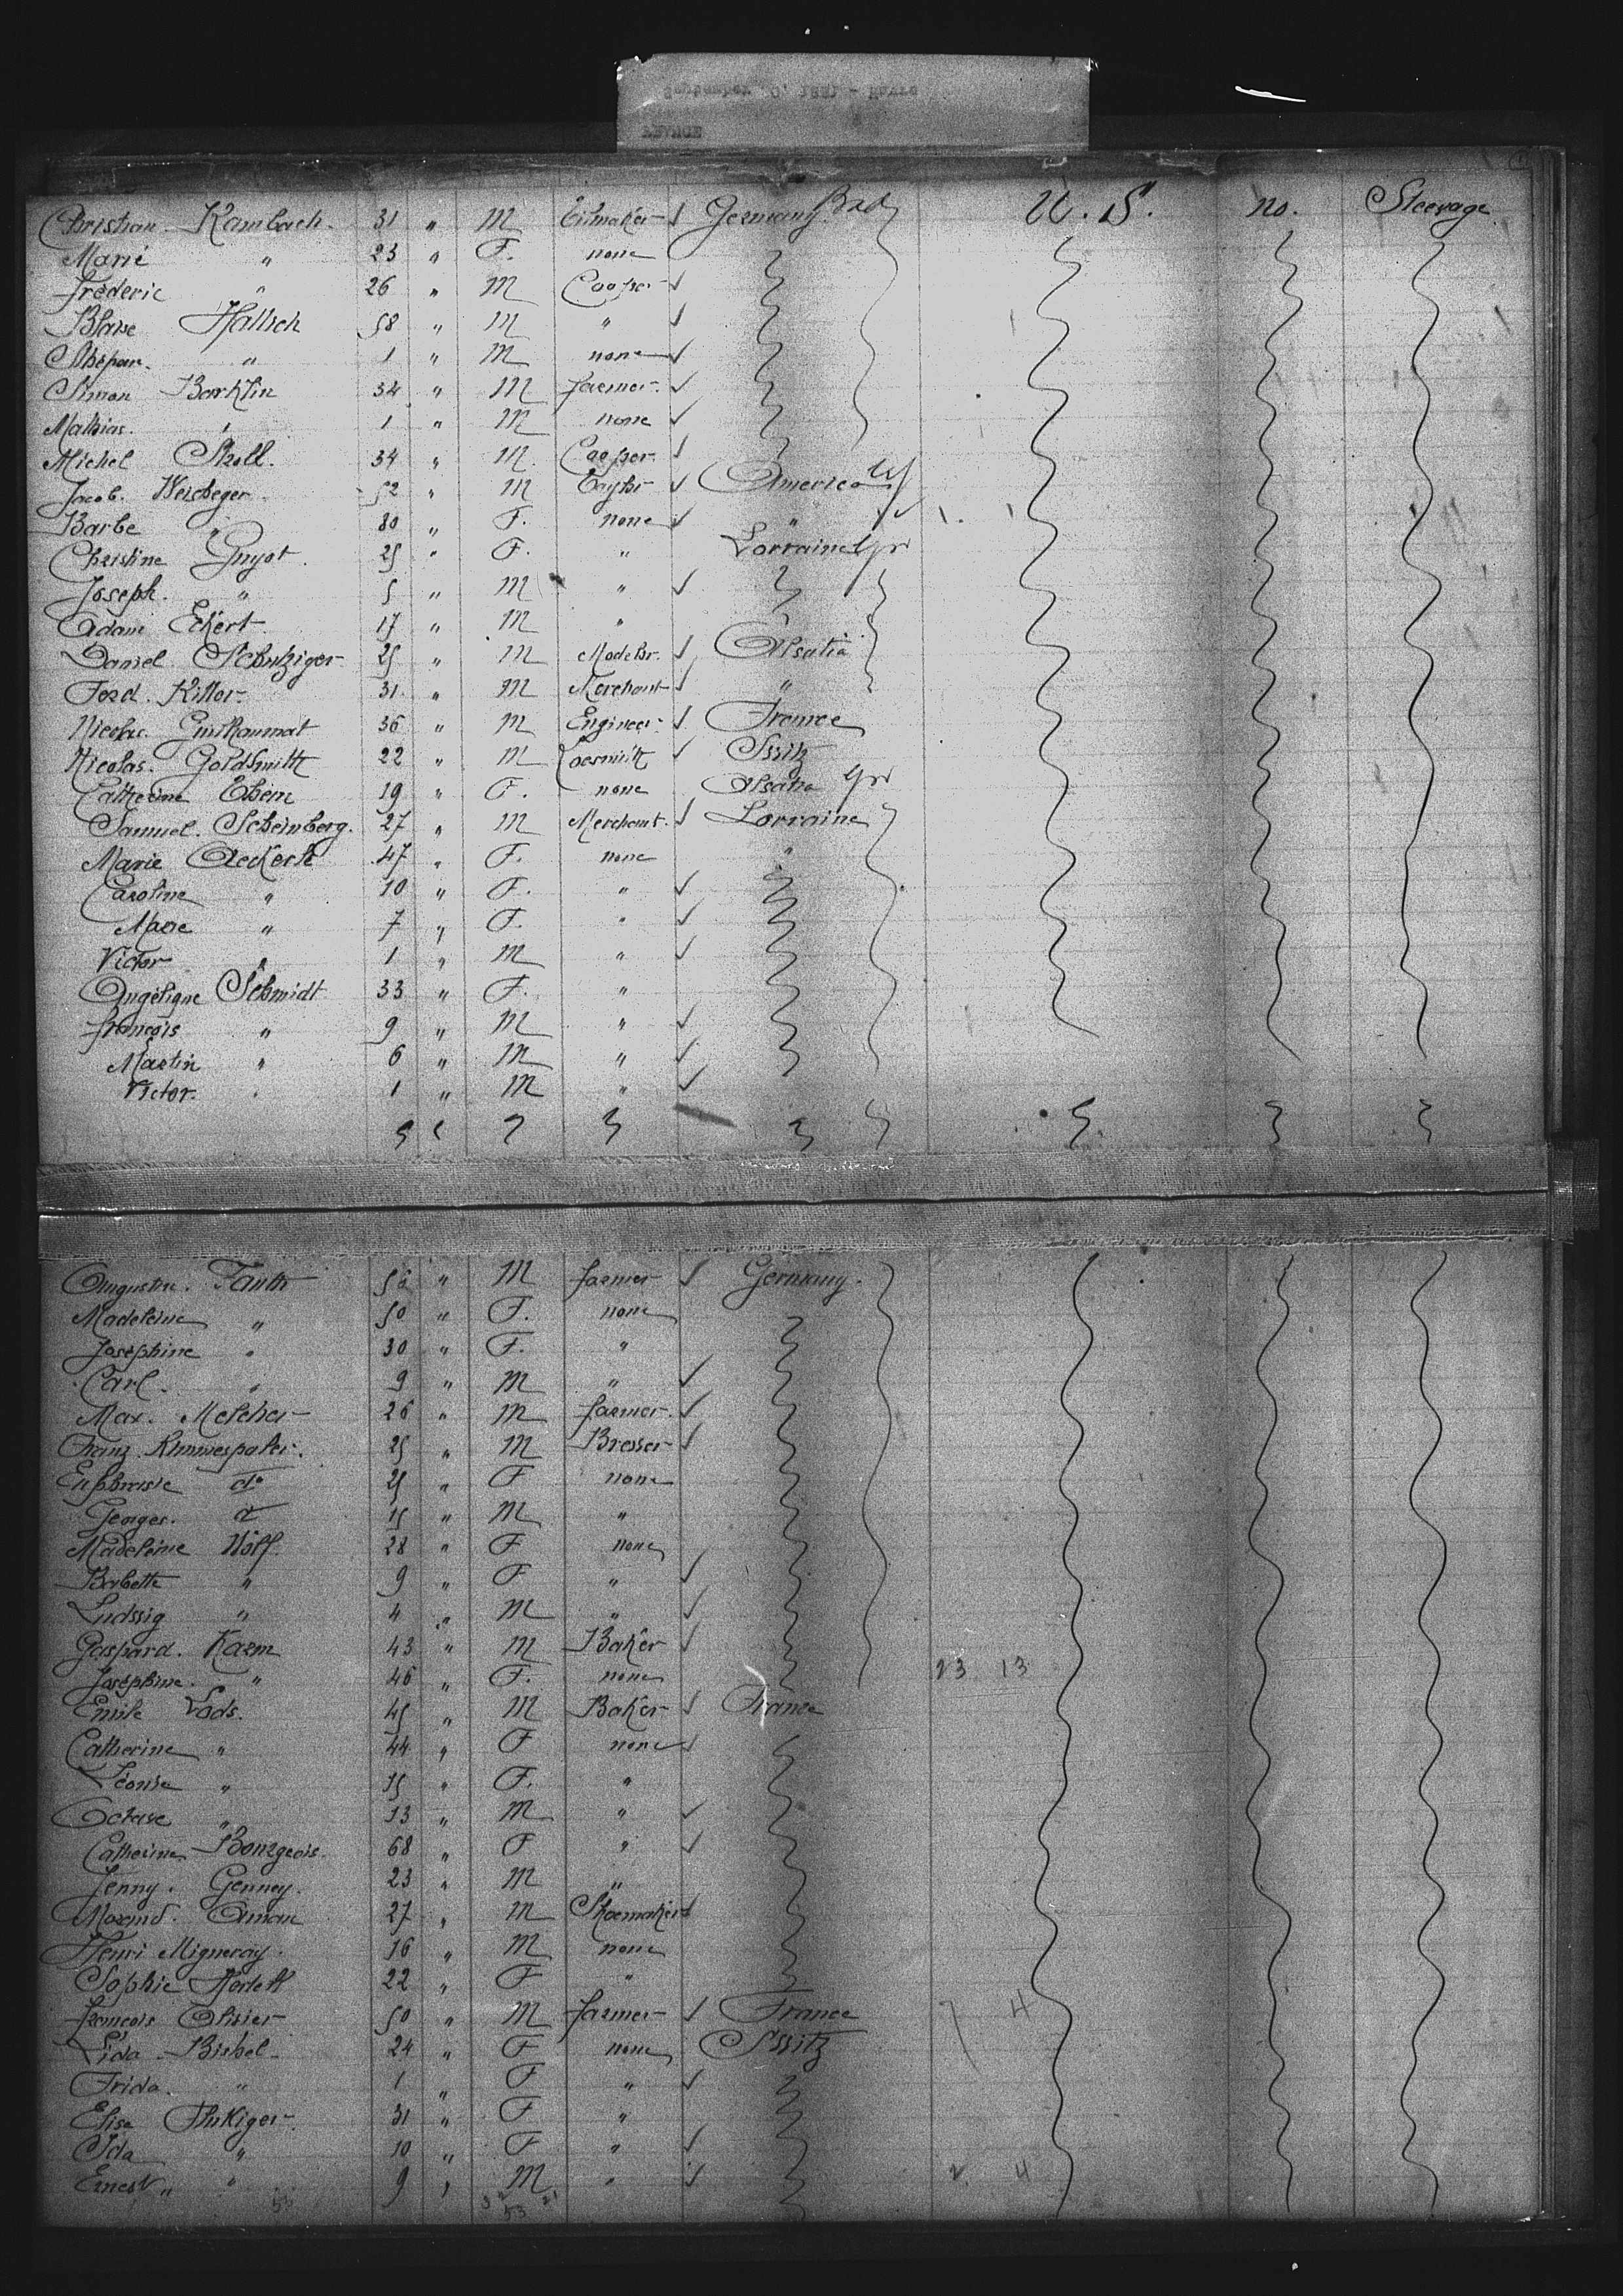 FRANCE
Christian Kambach. 31 " M Germany Bad U. S. no. Steerage
Marie " 23 " F. none
Fréderic " 26 " M Cooper
Blaise Hallich 58 " M "
" 1 " M none
Simon Barklin 34 " M farmer
Mathias. " 1 " M none
Michel Stoll. 34 " M. Cooper
Jacob. 52 " M America
Barbe " 80 " F. none "
Christine Guyot. 25 " F. " Lorraine
Joseph. " 5 " M "
Adam Eckert 17 " M "
Daniel. Schutziger 25 " M Alsatia
Ferd. Kitter. 31. " M Merchant "
Nicolas. 36 " M Engineer France
Nicolas. Goldsmith 22 " M Locsmith Switz
Catherine 19 " F. none Alsatia
Samuel. Scheinberg. 27 " M Merchant. Lorraine
Marie Aeckerle 47 " F. none "
Caroline " 10 " F. "
Marie " 7 " F. "
Victor " 1 " M "
Angélique Schmidt 33 " F. "
François " 9 " M "
Martin " 6 " M "
Victor. " 1 " M "
Fauth 56 " M farmer Germany.
Madeleine " 50 " F. none
Joséphine " 30 " F. "
Carl. " 9 " M "
Max. Melcher 26 " M farmer.
Franz 25 " M Bresser
do 25 " F none
Georges. d 15 " M "
Madeleine Wolf. 28 " F none
Babette " 9 " F "
Ludssig " 4 " M "
Gaspard. Karm 43 " M Baker
Joséphine. " 46 " F. none 23 13
Emile Lods. 45 " M Baker France
Catherine " 44 " F none
Léonie " 15 " F. "
Octave " 13 " M "
Catherine Bourgeois. 68 " F "
Jenny. Genney. 23 " M "
Aman 27 " M Shoemaker
Henri Migneray. 16 " M none
Sophie 22 " F "
François Olivier 50 " M farmer France 4
Lida Bichel 24 " F none Switz
Frida. " 1 " F "
Elise Flukiger 31 " F "
Ida " 10 " F "
Ernest " 9 " M " 2 4
53